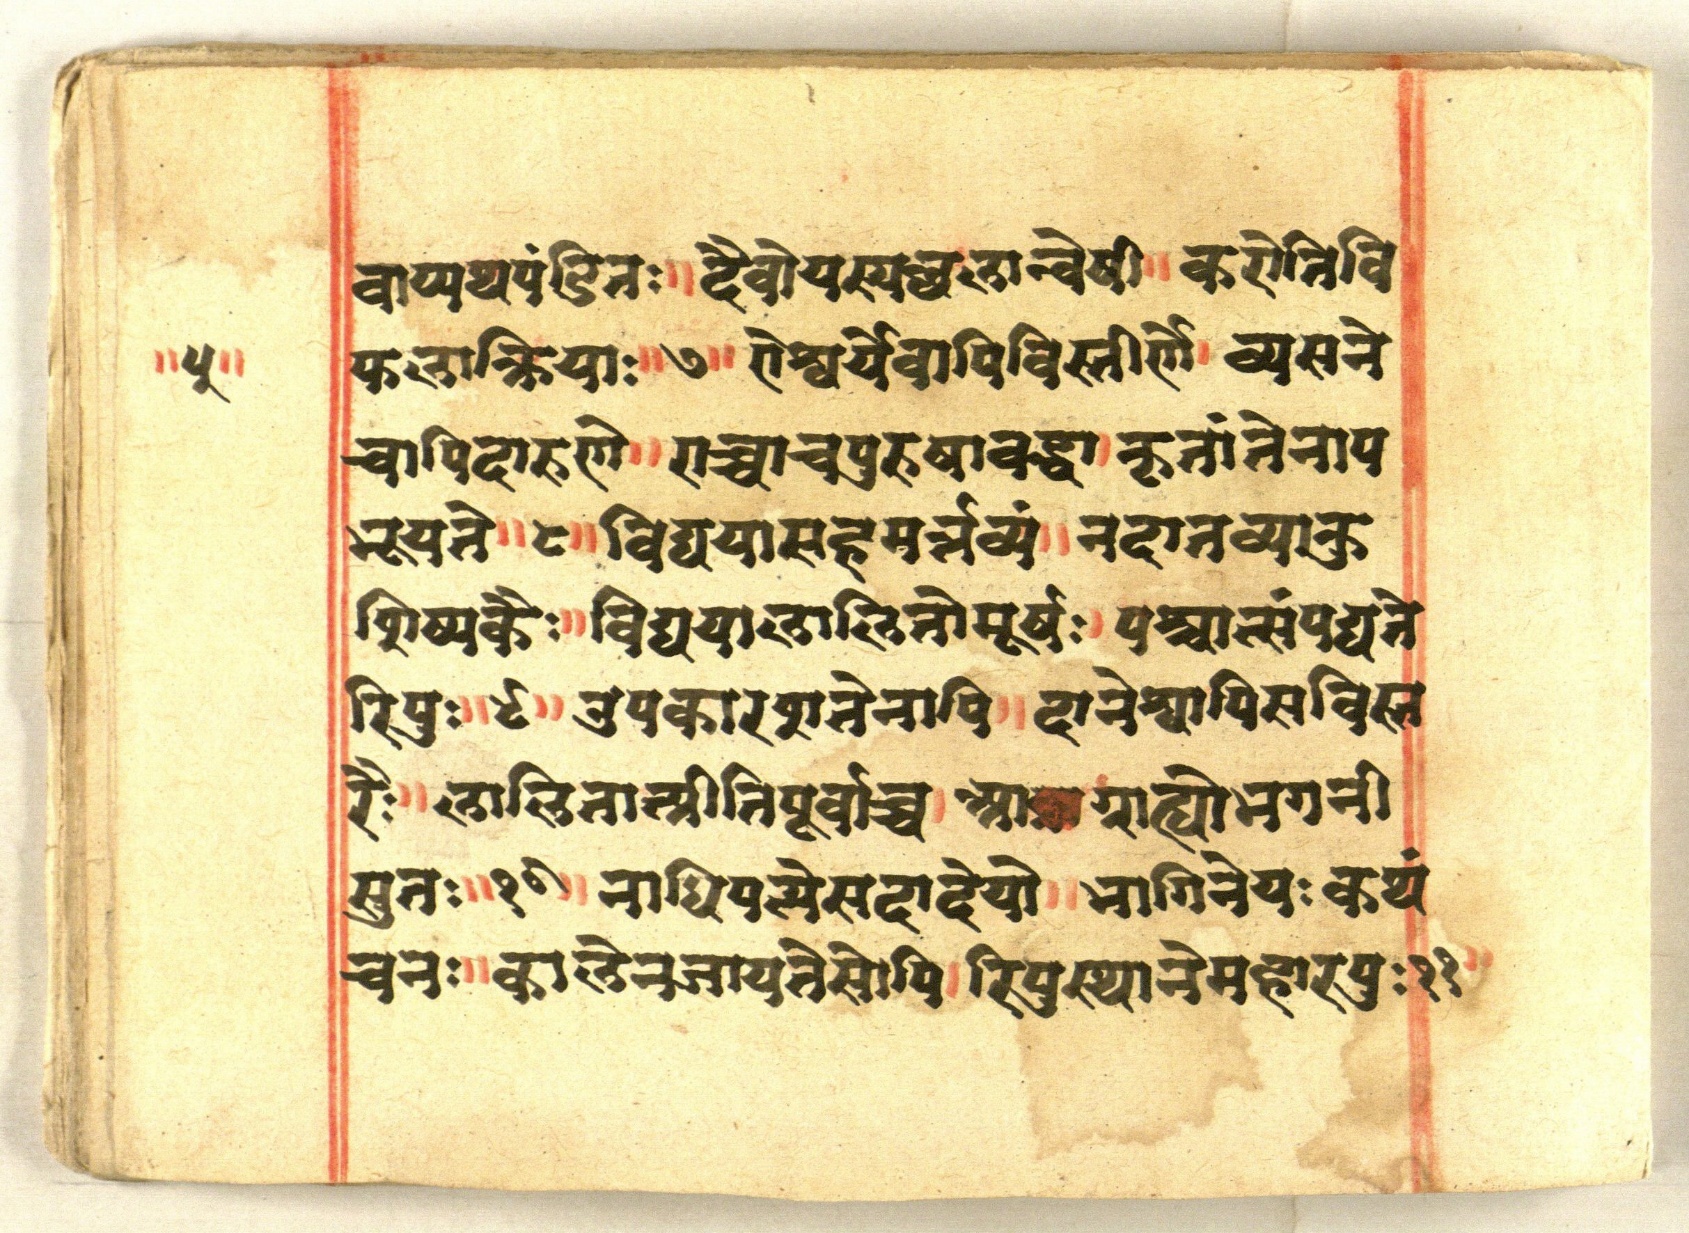 वाप्यथपंडितः॥ दैवोयस्यछलान्वेषी॥ करोतिवि
॥५॥
फलाक्रियाः॥७॥ ऐश्वर्येवापिविस्तीर्णे। व्यसने
चापिदारुणे॥ राच्चाचपुरुषाबद्धा। कृतांतेनाप
नूयते॥८॥ विद्ययासहमर्त्तव्यं॥ नदातव्याकु
शिष्यकैः॥ विद्ययालालितोमूर्षः। पश्चात्संपद्यते
रिपुः॥९॥ उपकारशतेनापि॥ दानेश्चापिसविस्त
रैः॥ लालिनात्प्रीतिपूर्वाच्च। ग्राह्योभगनी
सुतः॥१०॥ नाधिपत्येसदादेयो॥ भागिनेयः कथं
चनः॥ कालेनजायतेसोपि। रिपुस्थानेमहारपुः११॥